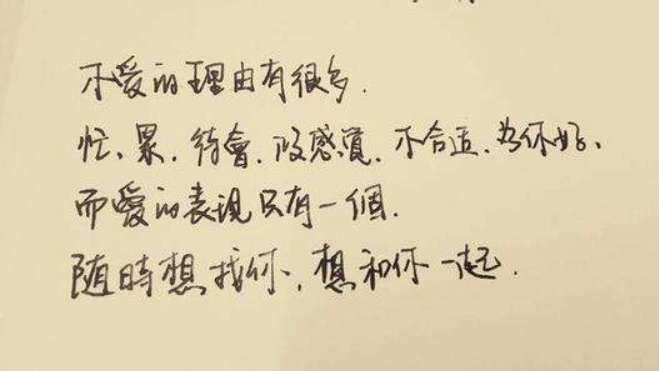 不爱的理由有很多.
忙、累.待會.没感覺.不合适.为你好、
而愛的表現只有一個.
随時想找你、想和你一起.